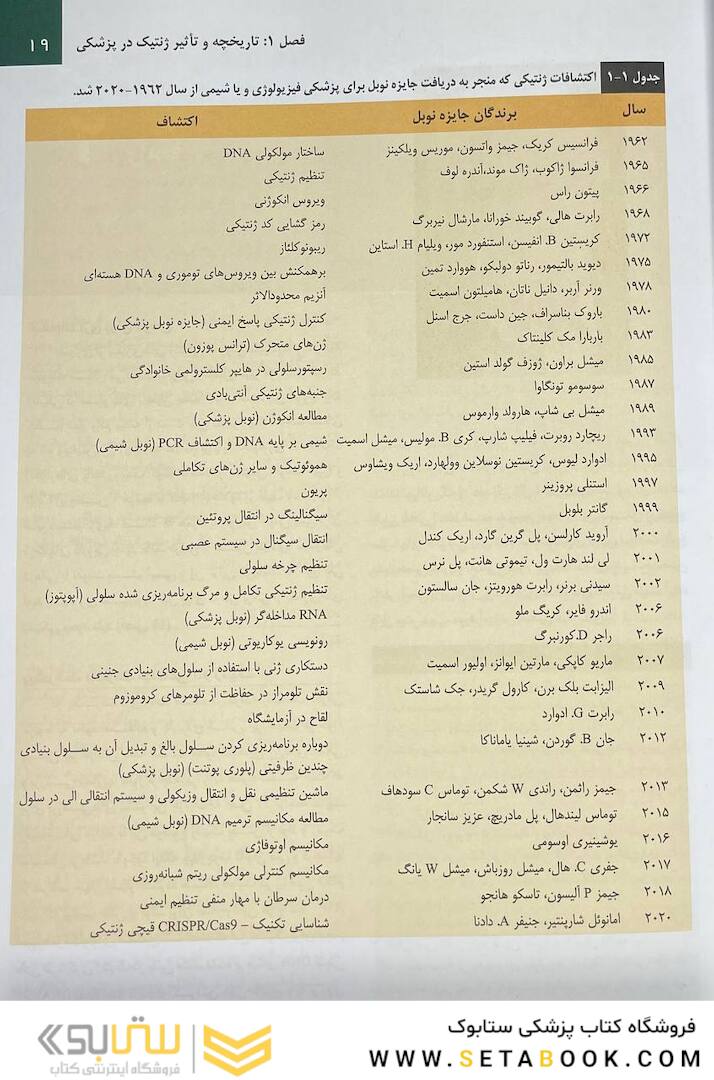 فصل ۱: تاریخچه و تأثیر ژنتیک در پزشکی ۱۹
جدول ۱-۱ اکتشافات ژنتیکی که منجر به دریافت جایزه نوبل برای پزشکی فیزیولوژی و یا شیمی از سال ۱۹۶۲-۲۰۲۰ شد.
سال برندگان جایزه نوبل اکتشاف
۱۹۶۲ فرانسیس کریک، جیمز واتسون، موریس ویلکینز ساختار مولکولی DNA
۱۹۶۵ فرانسوا ژاکوب، ژاک موند،آندره لوف تنظیم ژنتیکی
۱۹۶۶ پیتون راس ویروس انکوژنی
۱۹۶۸ رابرت هالی، گوبیند خورانا، مارشال نیربرگ رمز گشایی کد ژنتیکی
۱۹۷۲ کریستین B. انفیسن، استنفورد مور، ویلیام H. استاین ریبونوکلئاز
۱۹۷۵ دیوید بالتیمور، رناتو دولبکو، هووارد تمین برهمکنش بین ویروس‌های توموری و DNA هسته‌ای
۱۹۷۸ ورنر آربر، دانیل ناتان، هامیلتون اسمیت آنزیم محدودالاثر
۱۹۸۰ باروک بناسراف، جین داست، جرج اسنل کنترل ژنتیکی پاسخ ایمنی (جایزه نوبل پزشکی)
۱۹۸۳ باربارا مک کلینتاک ژن‌های متحرک (ترانس پوزون)
۱۹۸۵ میشل براون، ژوزف گولد استین رسپتورسلولی در هایپر کلسترولمی خانوادگی
۱۹۸۷ سوسومو تونگاوا جنبه‌های ژنتیکی آنتی‌بادی
۱۹۸۹ میشل بی شاپ، هارولد وارموس مطالعه انکوژن (نوبل پزشکی)
۱۹۹۳ ریچارد روبرت، فیلیپ شارپ، کری B. مولیس، میشل اسمیت شیمی بر پایه DNA و اکتشاف PCR (نوبل شیمی)
۱۹۹۵ ادوارد لیوس، کریستین نوسلاین وولهارد، اریک ویشاوس هموئوتیک و سایر ژن‌های تکاملی
۱۹۹۷ استنلی پروزینر پریون
۱۹۹۹ گانتر بلوبل سیگنالینگ در انتقال پروتئین
۲۰۰۰ آروید کارلسن، پل گرین گارد، اریک کندل انتقال سیگنال در سیستم عصبی
۲۰۰۱ لی لند هارت ول، تیموتی هانت، پل نرس تنظیم چرخه سلولی
۲۰۰۲ سیدنی برنر، رابرت هورویتز، جان سالستون تنظیم ژنتیکی تکامل و مرگ برنامه‌ریزی شده سلولی (آپوپتوز)
۲۰۰۶ اندرو فایر، کریگ ملو RNA مداخله‌گر (نوبل پزشکی)
۲۰۰۶ راجر D.کورنبرگ رونویسی یوکاریوتی (نوبل شیمی)
۲۰۰۷ ماریو کاپکی، مارتین ایوانز، اولیور اسمیت دستکاری ژنی با استفاده از سلول‌های بنیادی جنینی
۲۰۰۹ الیزابت بلک برن، کارول گریدر، جک شاستک نقش تلومراز در حفاظت از تلومرهای کروموزوم
۲۰۱۰ رابرت G. ادوارد لقاح در آزمایشگاه
۲۰۱۲ جان B. گوردن، شینیا یاماناکا دوباره برنامه‌ریزی کردن سـلول بالغ و تبدیل آن به سـلول بنیادی
چندین ظرفیتی (پلوری پوتنت) (نوبل پزشکی)
۲۰۱۳ جیمز راثمن، راندی W شکمن، توماس C سودهاف ماشین تنظیمی نقل و انتقال وزیکولی و سیستم انتقالی الی در سلول
۲۰۱۵ توماس لیندهال، پل مادریچ، عزیز سانجار مطالعه مکانیسم ترمیم DNA (نوبل شیمی)
۲۰۱۶ یوشینیری اوسومی مکانیسم اوتوفاژی
۲۰۱۷ جفری C. هال، میشل روزباش، میشل W یانگ مکانیسم کنترلی مولکولی ریتم شبانه‌روزی
۲۰۱۸ جیمز P آلیسون، تاسکو هانجو درمان سرطان با مهار منفی تنظیم ایمنی
۲۰۲۰ امانوئل شارپنتیر، جنیفر A. دادنا شناسایی تکنیک – CRISPR/Cas9 قیچی ژنتیکی
فروشگاه کتاب پزشکی ستابوک
WWW.SETABOOK.COM
ستابوک
فروشگاه اینترنتی کتاب